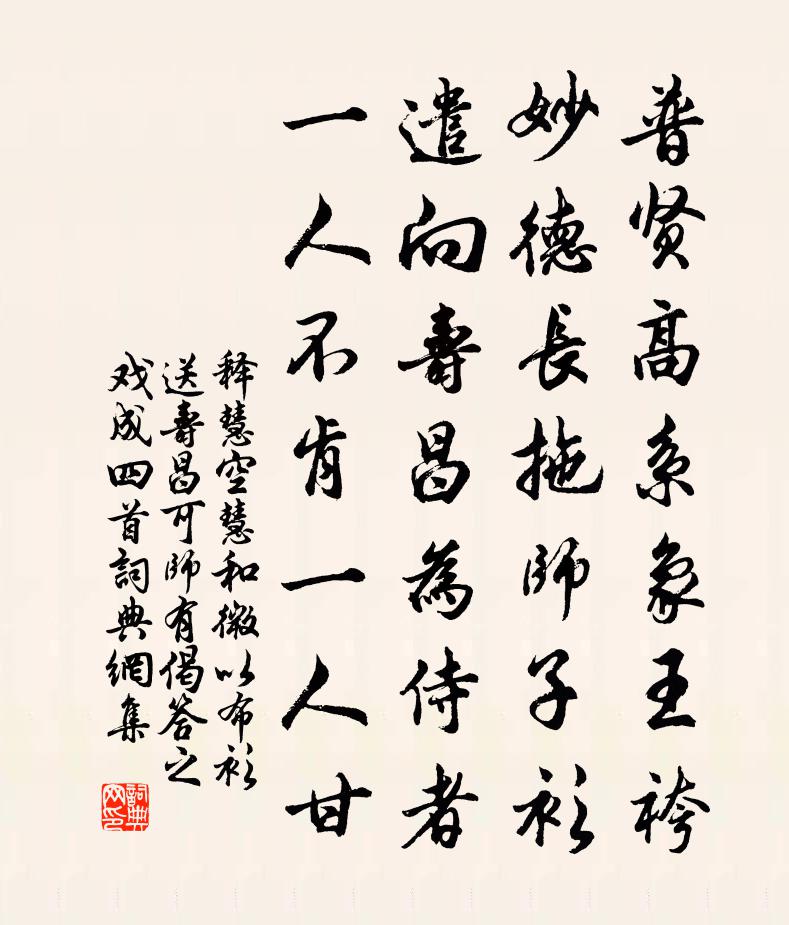 普贤高系象王袴
妙德長拖師子衫
遣向壽昌為侍者
一人不肯一人甘
释慧空慧和微以布衫
送壽昌可師有偈答之
戏成四首詞典網集
詞典网印